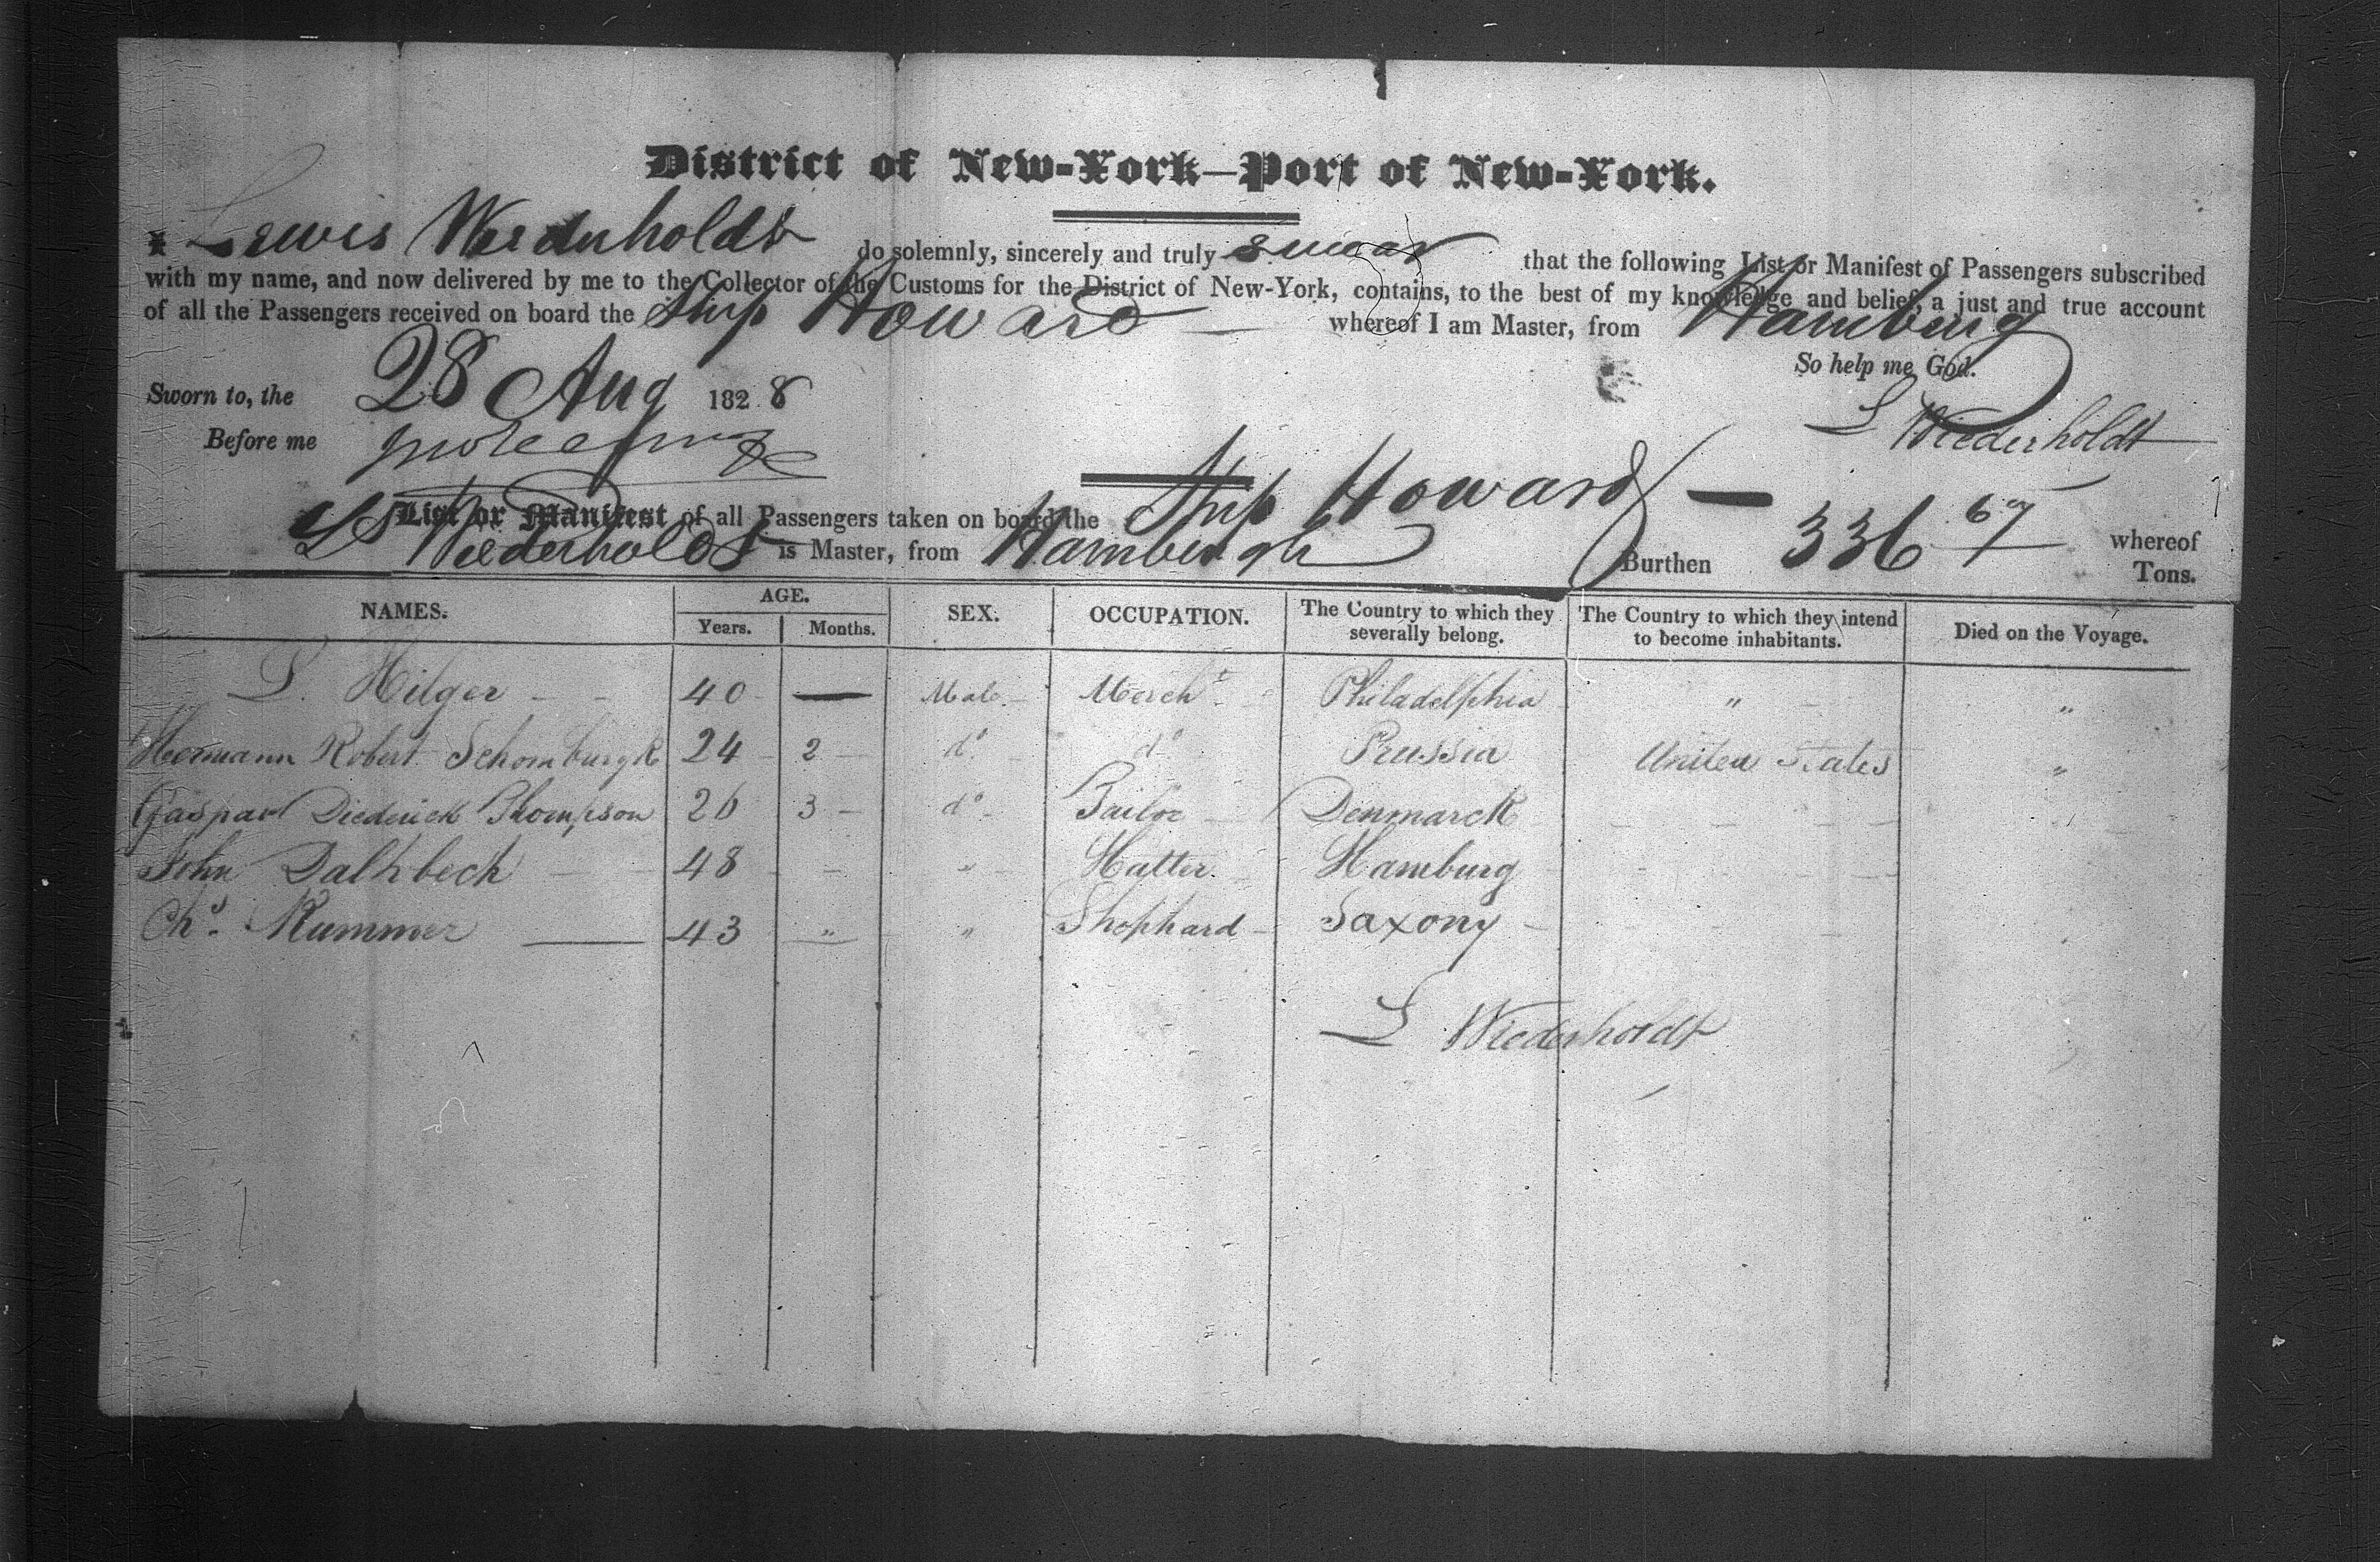 District of New-York—Port of New-York.
I Lewis Wiederholdt do solemnly, sincerely and truly swear that the following List or Manifest of Passengers subscribed
with my name, and now delivered by me to the Collector of the Customs for the District of New-York, contains, to the best of my knowledge and belief, a just and true account
of all the Passengers received on board the Ship Howard whereof I am Master, from Hamburg
So help me God.
Sworn to, the 28 Aug 1828
L Wiederholdt
Before me
List or Manifest of all Passengers taken on board the Ship Howard — whereof
L Wiederholdt is Master, from Hamburgh Burthen 336 67 Tons.
NAMES. AGE. SEX. OCCUPATION. The Country to which they severally belong. The Country to which they intend to become inhabitants. Died on the Voyage.
Years. Months.
L. Hilger - - 40 — Male Mercht Philadelphia " "
Hermann Robert Schomburgk 24 2 do do Prussia United States "
Gaspar Diederick Thompson 26 3 do Tailor Denmarck
John Dalhbech 48 - " Hatter Hamburg
Chs. Kummer 43 " " Shephard Saxony
L Wiederholdt